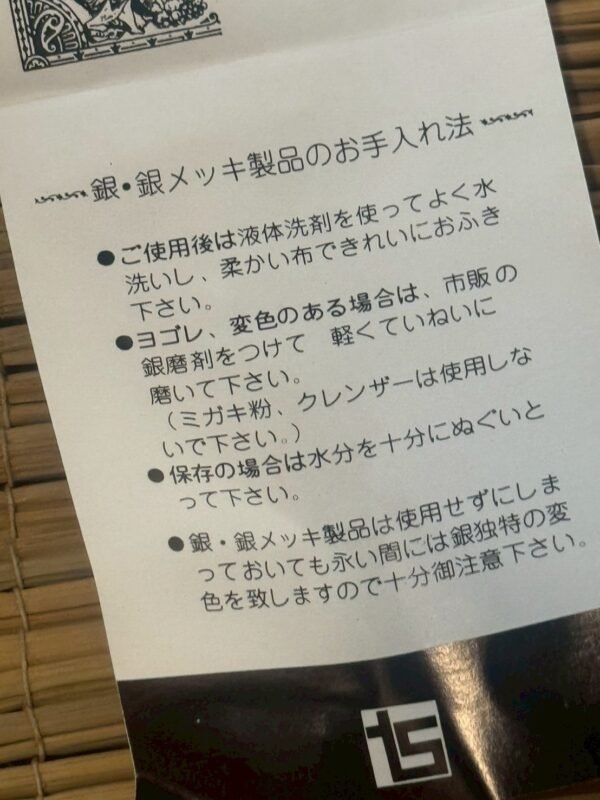 銀・銀メッキ製品のお手入れ法
●ご使用後は液体洗剤を使ってよく水
洗いし、柔かい布できれいにおふき
下さい。
●ヨゴレ、変色のある場合は、市販の
銀磨剤をつけて　軽くていねいに
磨いて下さい。
（ミガキ粉、クレンザーは使用しな
いで下さい。）
●保存の場合は水分を十分にぬぐいと
って下さい。
●銀・銀メッキ製品は使用せずにしま
っておいても永い間には銀独特の変
色を致しますので十分御注意下さい。
ts